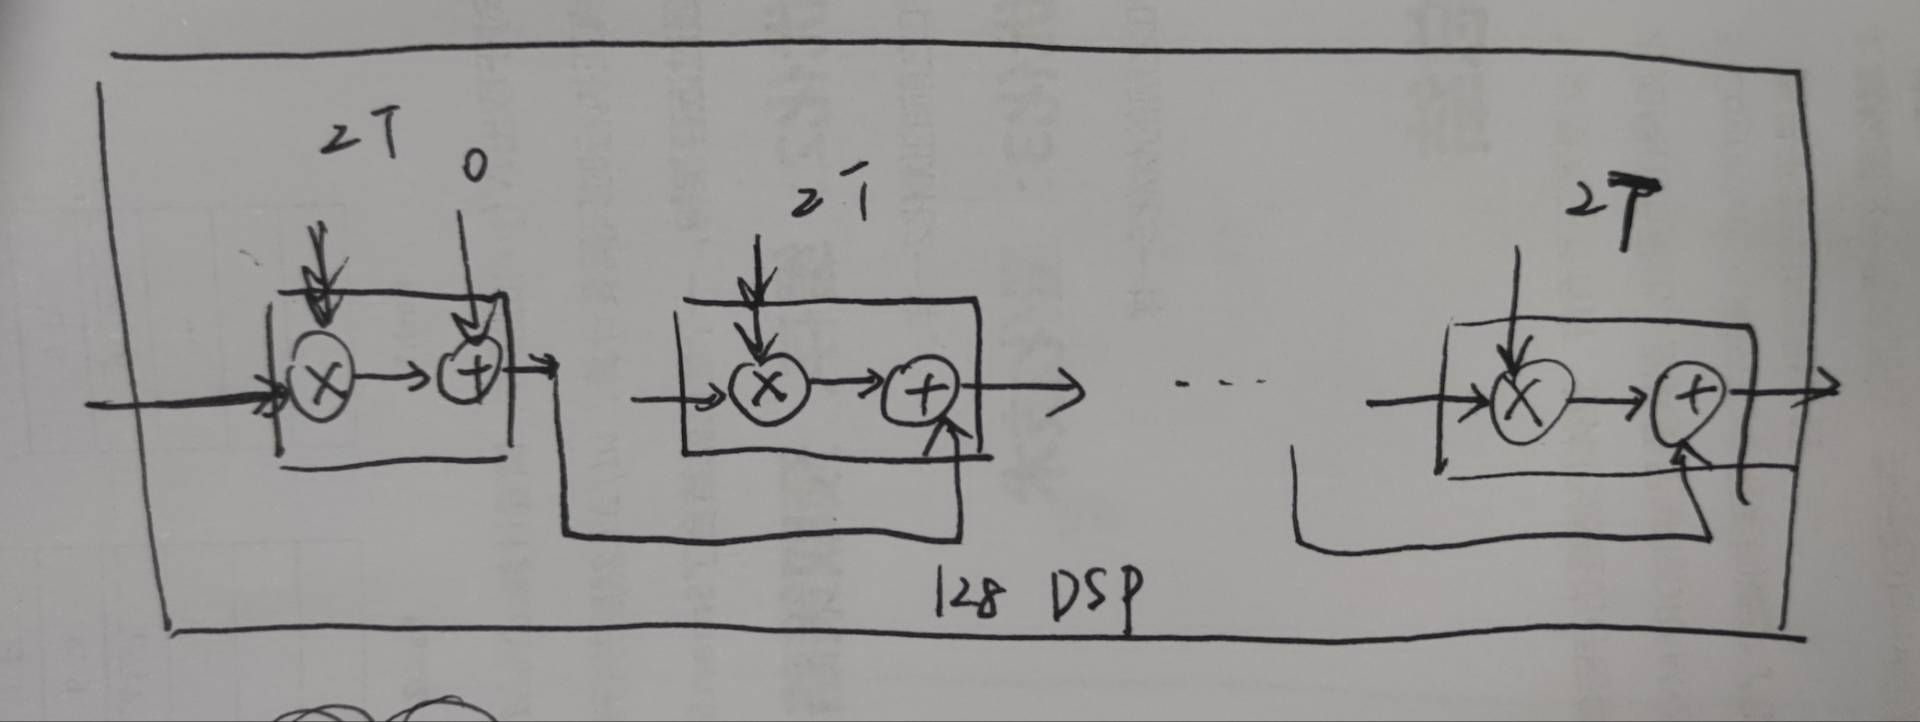 2T
0
2T
2T
× + × + - - - × +
128 DSP